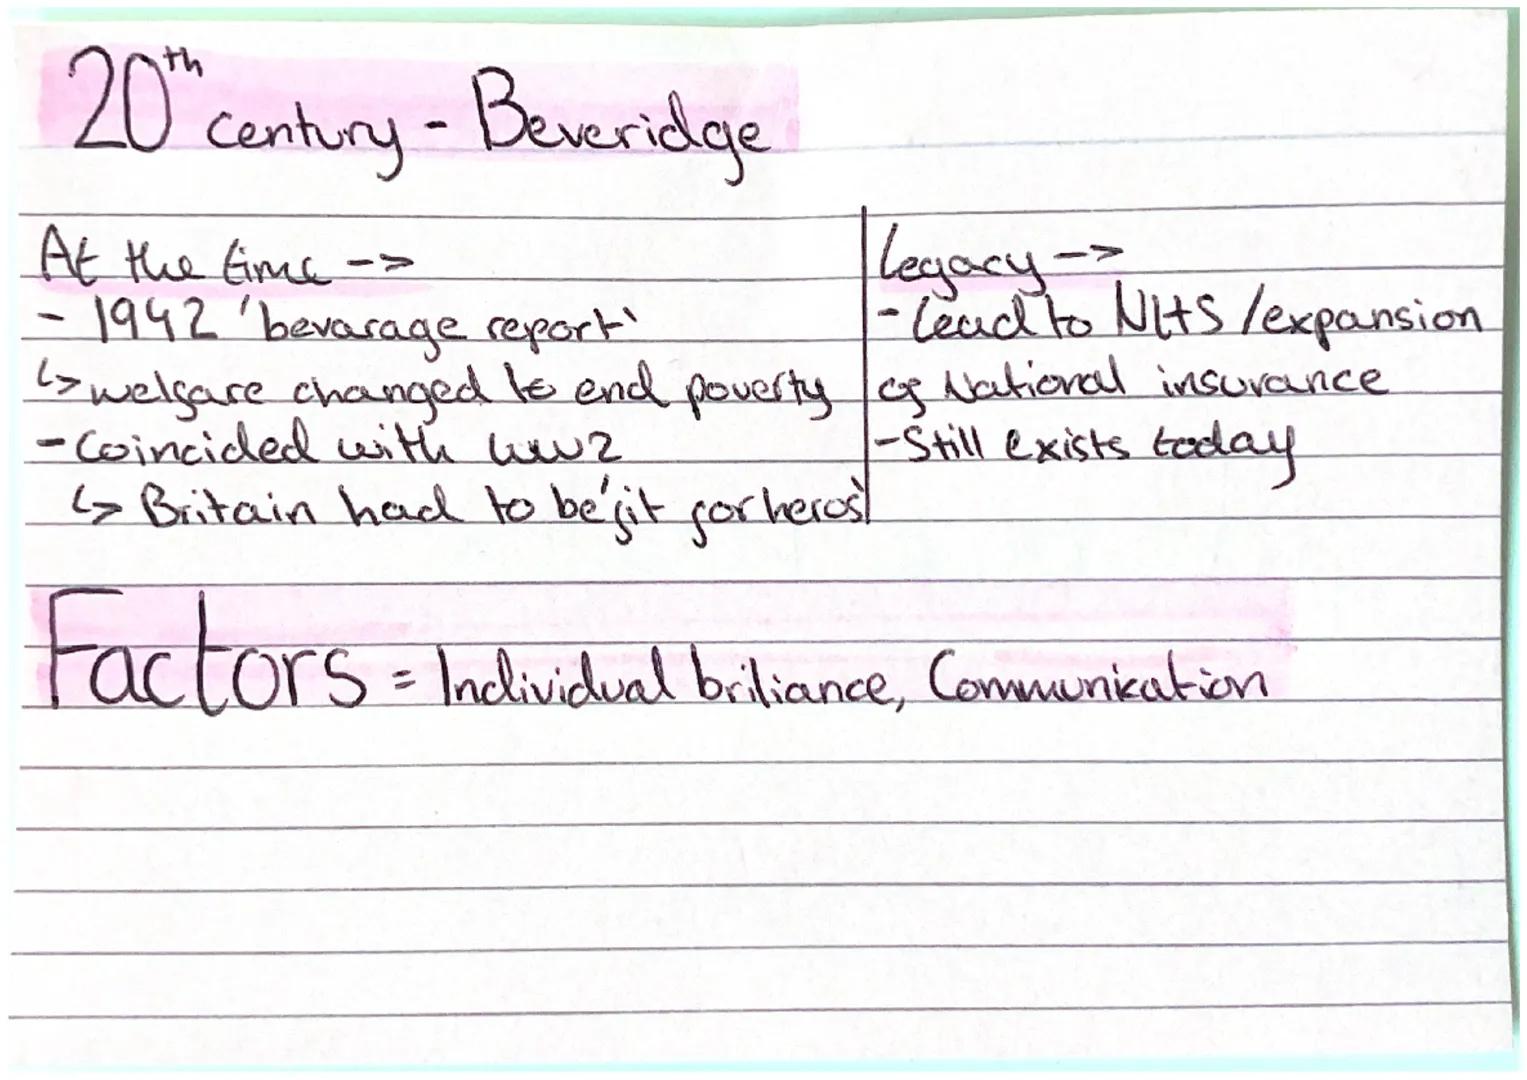 20th century - Beveridge
At the time -->
- 1942 'bevarage report'
↳ welfare changed to end poverty
- Coincided with ww2
↳ Britain had to be 'fit for heros'
Legacy -->
- Lead to NHS / expansion
of National insurance
- Still exists today
Factors = Individual briliance, Communication